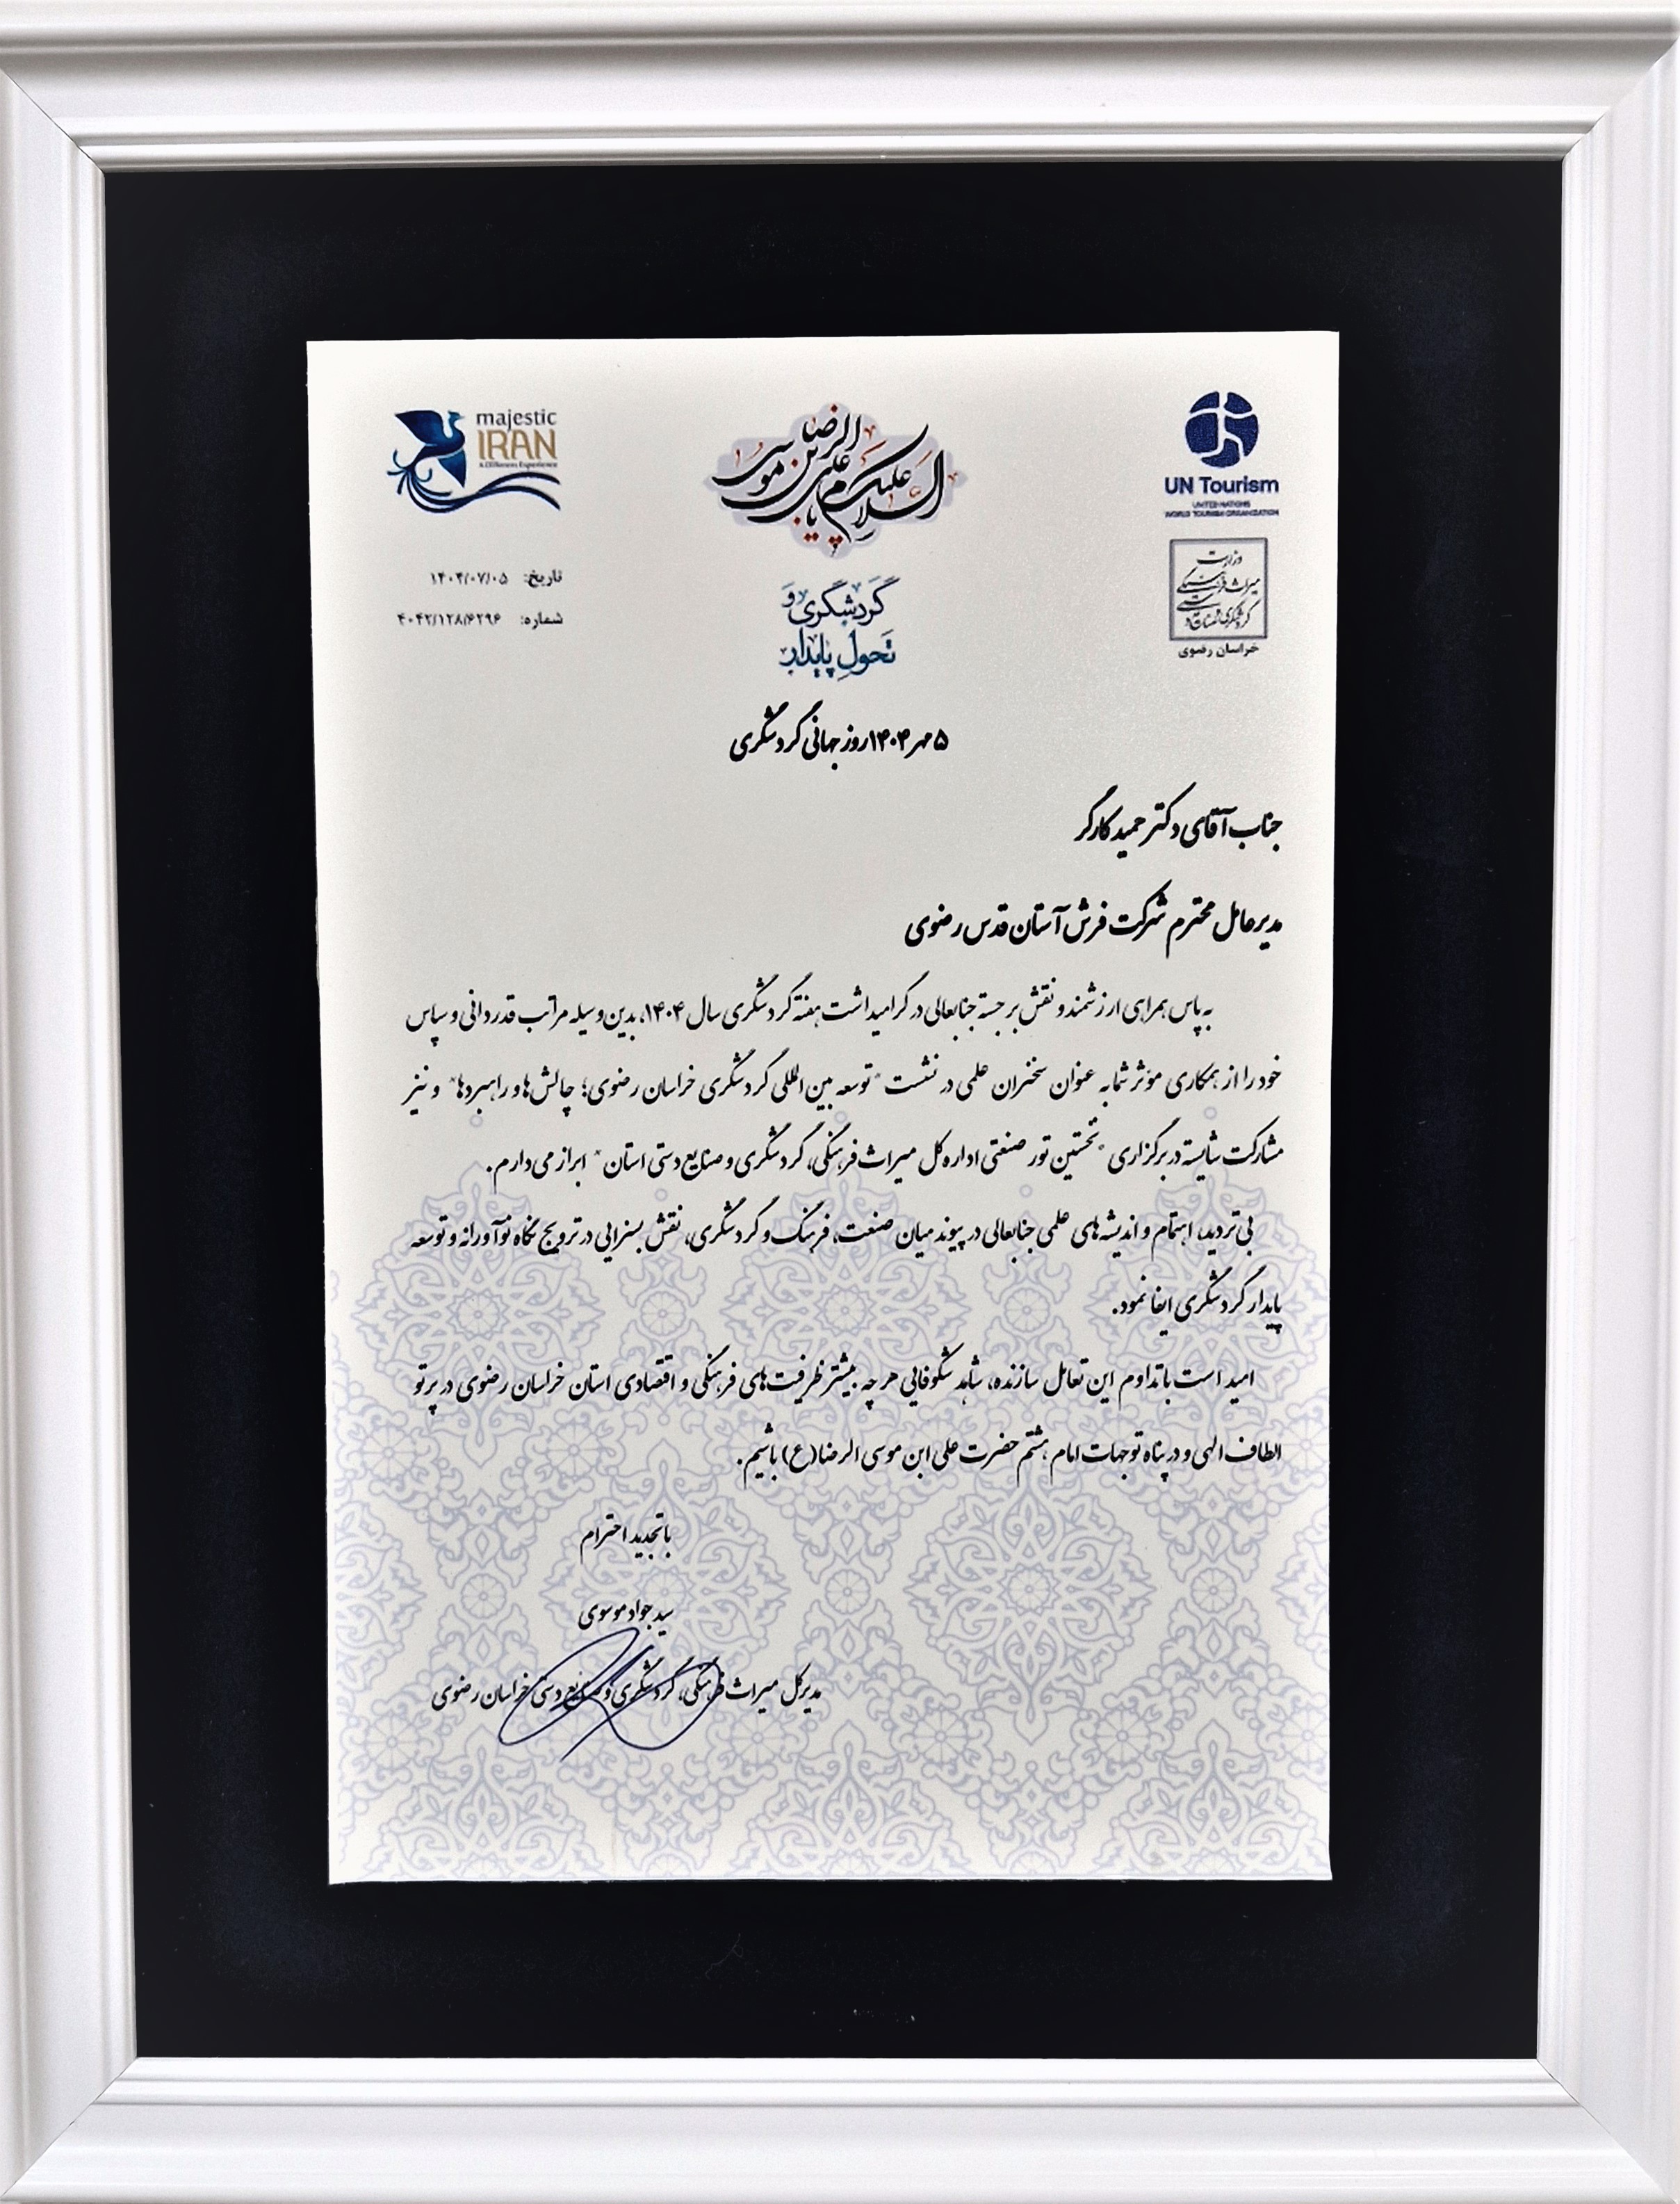 majestic
IRAN
A Different Experience
السلام علیک یا علی بن موسی الرضا
UN Tourism
UNITED NATIONS
WORLD TOURISM ORGANIZATION
وزارت
میراث فرهنگی
گردشگری و صنایع دستی
خراسان رضوی
تاریخ: ۱۴۰۴/۰۷/۰۵
شماره: ۴۰۴۲/۱۲۸/۶۲۹۶
گردشگری و
تحول پایدار
۵ مهر ۱۴۰۴ روز جهانی گردشگری
جناب آقای دکتر حمید کارگر
مدیرعامل محترم شرکت فرش آستان قدس رضوی
به پاس همراهی ارزشمند و نقش برجسته جنابعالی در گرامیداشت هفته گردشگری سال ۱۴۰۴، بدین وسیله مراتب قدردانی و سپاس
خود را از همکاری موثر شما به عنوان سخنران علمی در نشست "توسعه بین المللی گردشگری خراسان رضوی؛ چالش‌ها و راهبردها" و نیز
مشارکت شایسته در برگزاری "نخستین تور صنعتی اداره کل میراث فرهنگی، گردشگری و صنایع دستی استان" ابراز می دارم.
بی تردید، اهتمام و اندیشه های علمی جنابعالی در پیوند میان صنعت، فرهنگ و گردشگری، نقش بسزایی در ترویج نگاه نوآورانه و توسعه
پایدار گردشگری ایفا نمود.
امید است با تداوم این تعامل سازنده، شاهد شکوفایی هر چه بیشتر ظرفیت های فرهنگی و اقتصادی استان خراسان رضوی در پرتو
الطاف الهی و در پناه توجهات امام هشتم حضرت علی ابن موسی الرضا(ع) باشیم.
با تجدید احترام
سید جواد موسوی
مدیرکل میراث فرهنگی، گردشگری و صنایع دستی خراسان رضوی